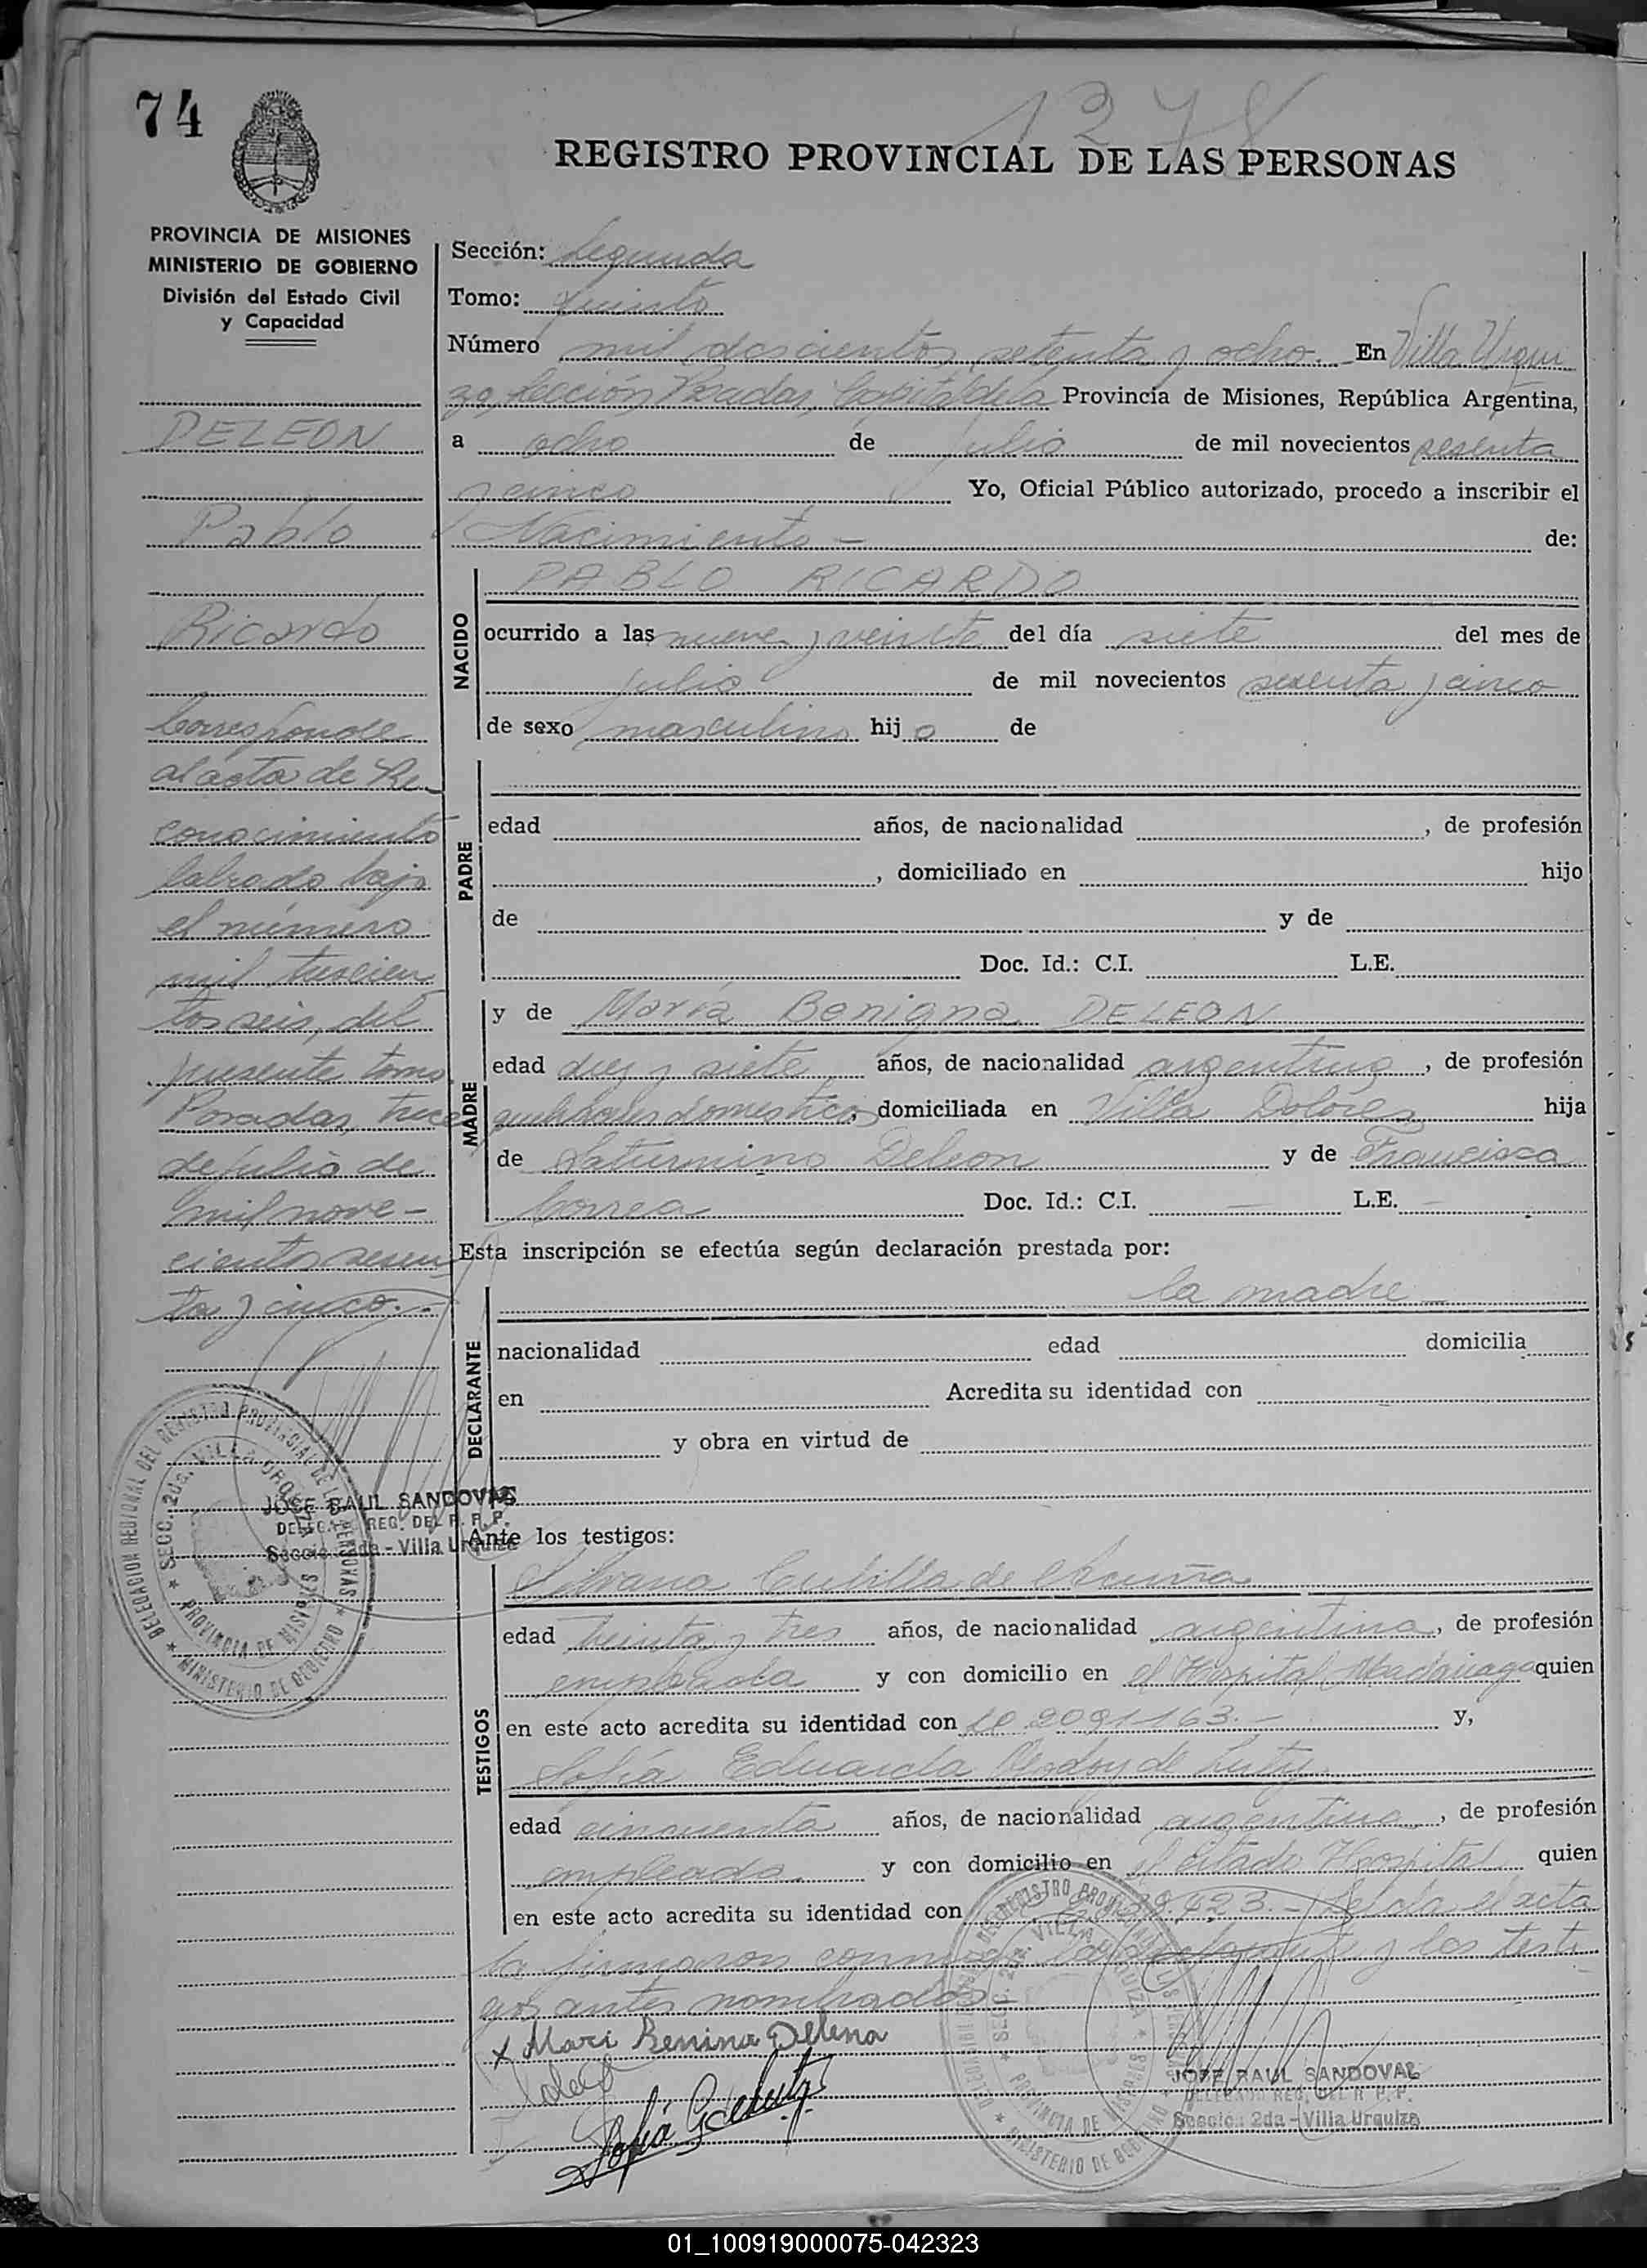 74
1278
REGISTRO PROVINCIAL DE LAS PERSONAS
PROVINCIA DE MISIONES
MINISTERIO DE GOBIERNO
División del Estado Civil
y Capacidad
DELEON
Pablo
Ricardo
Corresponde
al acta de Re-
conocimiento
labrada bajo
el número
mil trescien
tos seis, del
presente tomo
Posadas, trece
de julio de
mil nove-
cientos sesen
ta y cinco.-
Sección: Segunda
Tomo: quinto
Número mil doscientos setenta y ocho. En Villa Urqui
za, Sección Posadas, Capital de la Provincia de Misiones, República Argentina,
a ocho de julio de mil novecientos sesenta
y cinco Yo, Oficial Público autorizado, procedo a inscribir el
Nacimiento - de:
NACIDO
PABLO RICARDO
ocurrido a las nueve y veinte del día siete del mes de
julio de mil novecientos sesenta y cinco
de sexo masculino hijo de
PADRE
edad años, de nacionalidad , de profesión
, domiciliado en hijo
de y de
Doc. Id.: C.I. L.E.
MADRE
y de María Benigna DELEON
edad diez y siete años, de nacionalidad argentina, de profesión
quehaceres domésticos, domiciliada en Villa Dolores hija
de Saturnino Deleon y de Francisca
Correa Doc. Id.: C.I. - L.E. -
Esta inscripción se efectúa según declaración prestada por:
DECLARANTE
la madre
nacionalidad edad domicilia
en Acredita su identidad con
y obra en virtud de
Ante los testigos:
TESTIGOS
Silvana Cubilla de Acuña
edad treinta y tres años, de nacionalidad argentina, de profesión
empleada y con domicilio en el Hospital Madariaga quien
en este acto acredita su identidad con 2091163.- y,
Sofía Eduarda de
edad cincuenta años, de nacionalidad argentina, de profesión
empleada y con domicilio en el citado Hospital quien
en este acto acredita su identidad con .423.- Leida el acta
la firmaron conmigo la declarante y los testi
gos antes nombrados
x Mari Benina Dellena
Sofía
JOSE RAUL SANDOVAL
DELEGADO REG. DEL R. P. P.
Sección 2da - Villa Urquiza
DELEGACION REGIONAL DEL REGISTRO PROVINCIAL DE LAS PERSONAS
SECC. 2da. VILLA URQUIZA
PROVINCIA DE MISIONES
MINISTERIO DE GOBIERNO
JOSE RAUL SANDOVAL
DELEGADO REG. DEL R. P. P.
Sección 2da - Villa Urquiza
01_100919000075-042323